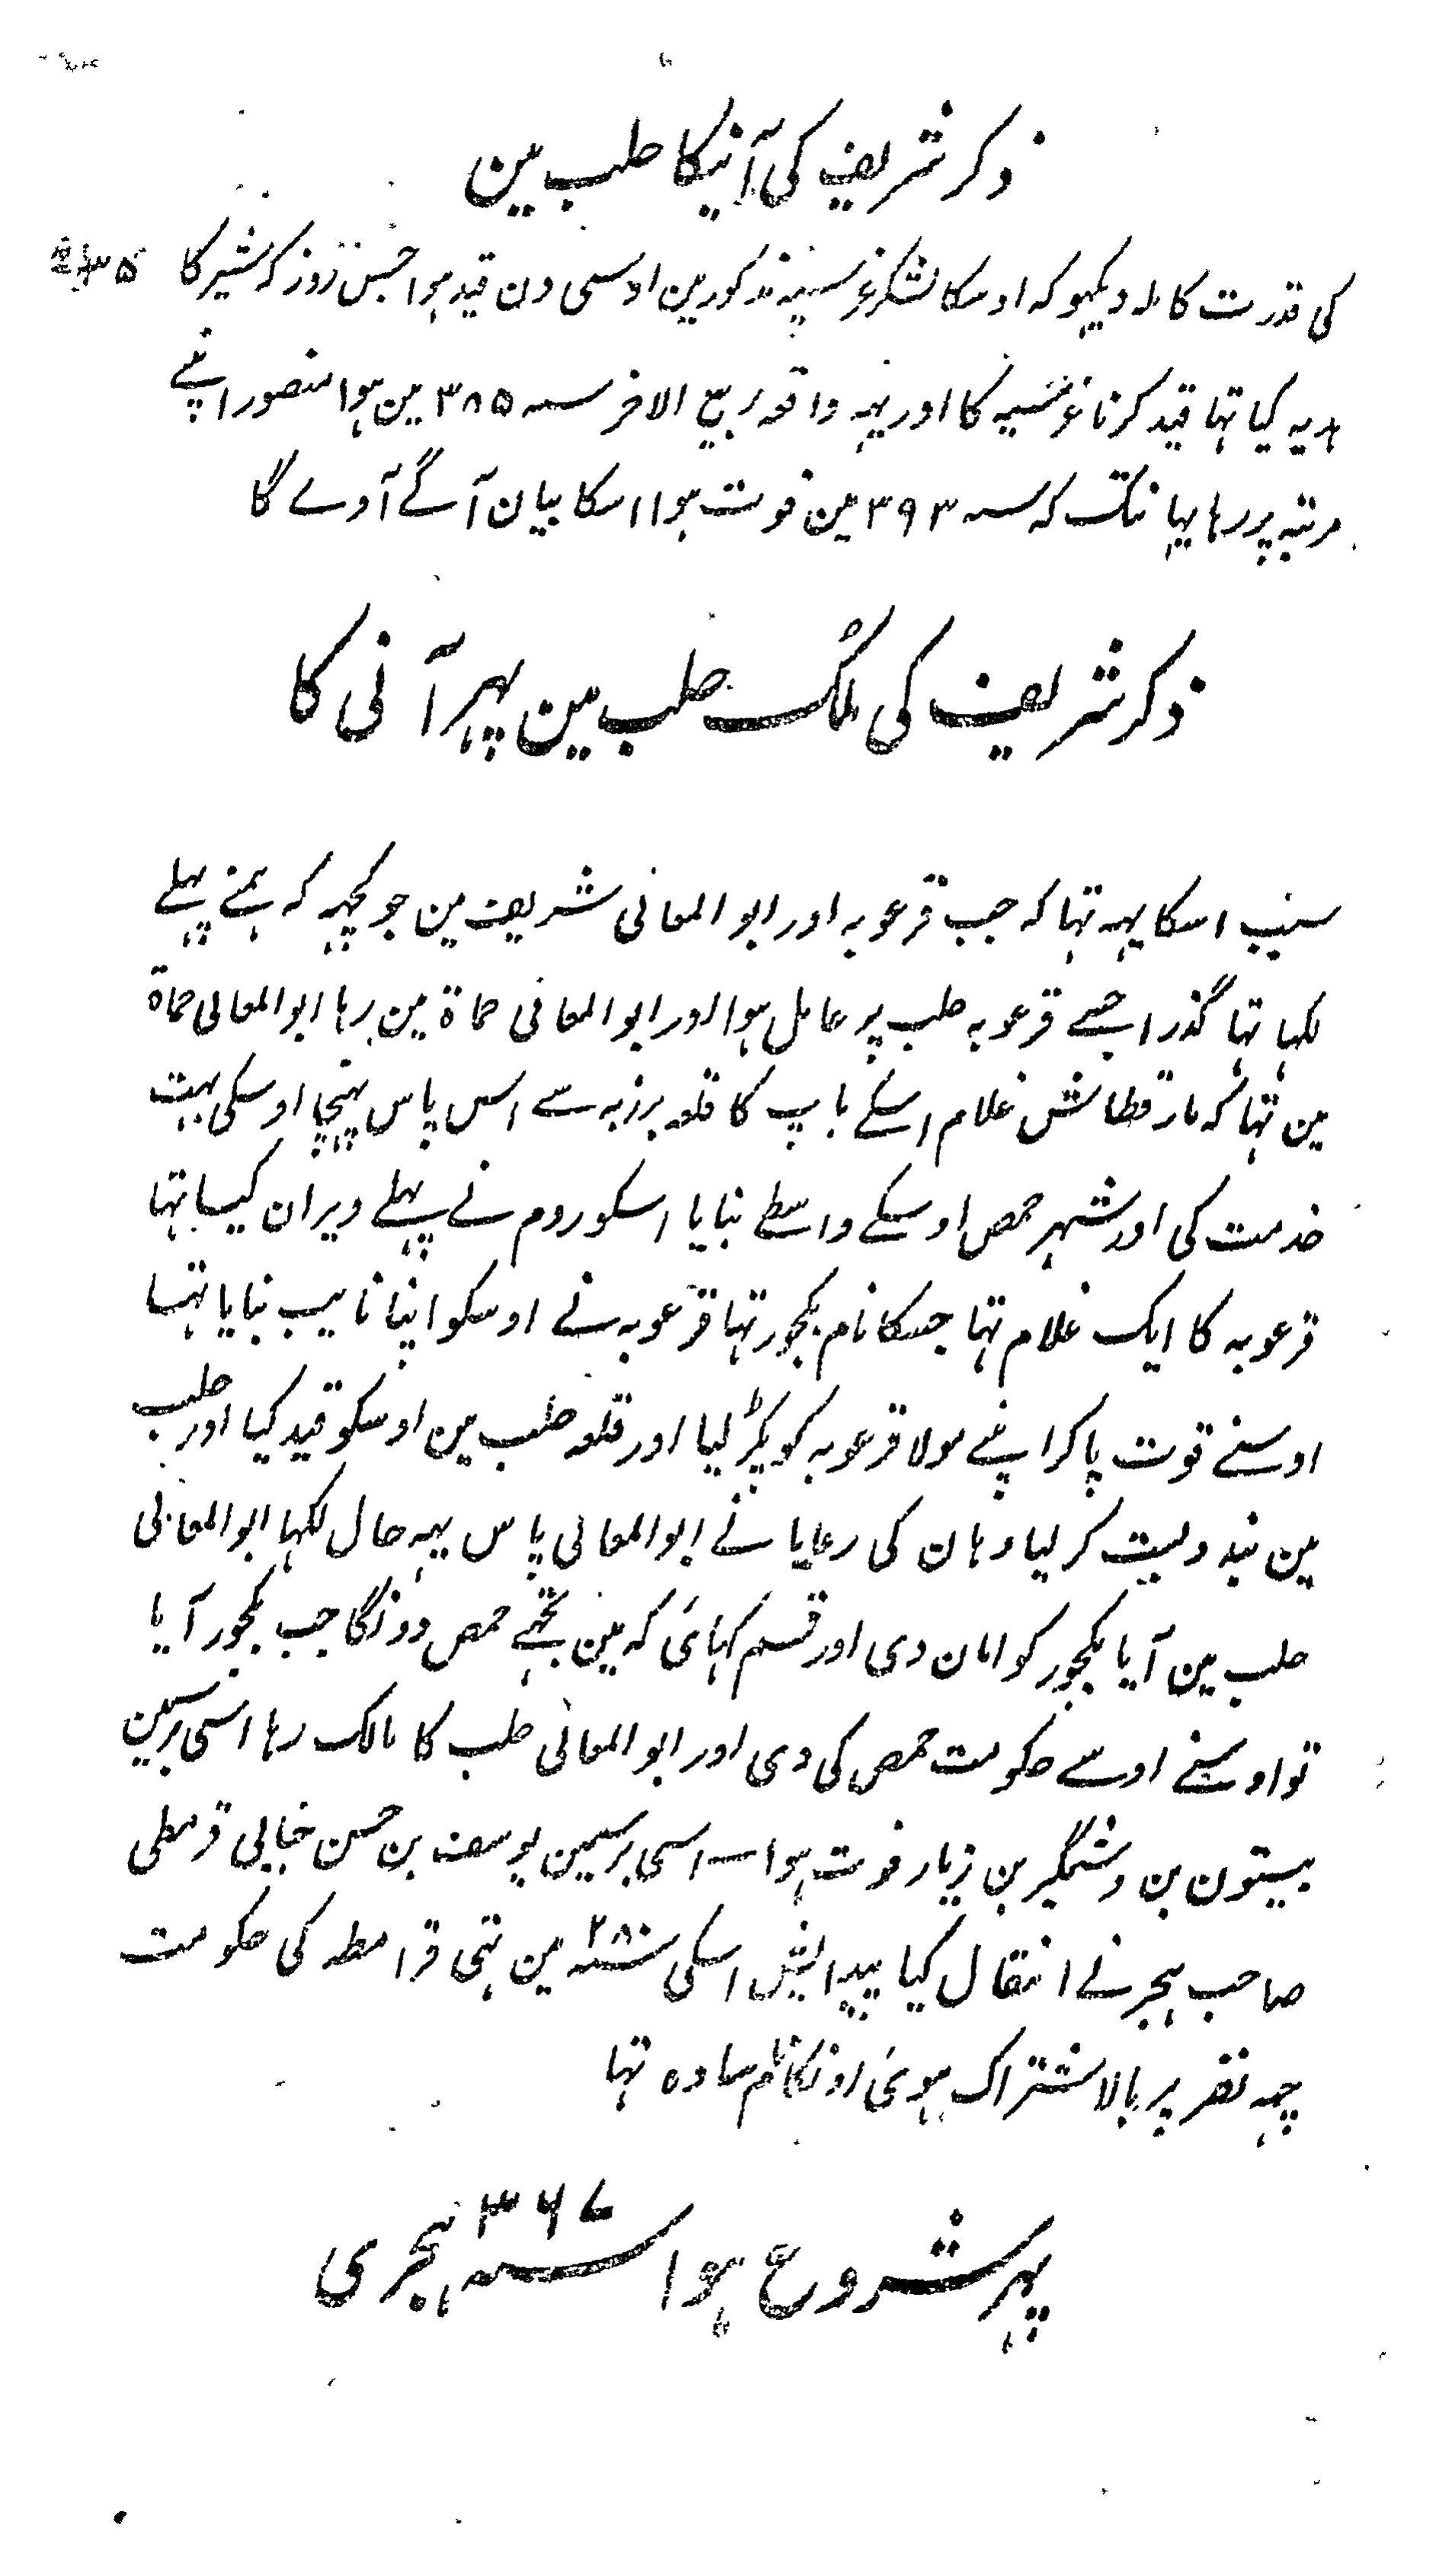 ذکر شریف کی آنیکا حلب مین
کی قدرت کاملہ دیکہو کہ اوسکا لشکر غرسیہ مذکور مین اوسی دن قید ہوا جس روز کہ شیر کا
ہدیہ کیا تہا قید کرنا غرسیہ کا اور یہہ واقعہ ربیع الاخر سنہ ۳۸۵ مین ہوا منصور اپنے
مرتبہ پر رہا یہانتک کہ سنہ ۳۹۳ مین فوت ہوا اسکا بیان آگے آوے گا
ذکر شریف کی ملک حلب مین پہر آنی کا
سبب اسکا یہہ تہا کہ جب قرعویہ اور ابو المعالی شریف مین جو کچہہ کہ ہمنے پہلے
لکہا تہا گذرا جیسے قرعویہ حلب پر عامل ہوا اور ابو المعالی حماة مین رہا ابو المعالی حماة
مین تہا کہ مارقطاش غلام اسکے باپ کا قلعہ برزیہ سے اس پاس پہنچا اوسکی بہت
خدمت کی اور شہر حمص اوسکے واسطے بنایا اسکو روم نے پہلے ویران کیا تہا
قرعویہ کا ایک غلام تہا جسکا نام بکجور تہا قرعویہ نے اوسکو اپنا نایب بنایا تہا
اوسنے قوت پاکر اپنے مولا قرعویہ کو پکڑ لیا اور قلعہ حلب مین اوسکو قید کیا اور حلب
مین بندوبست کر لیا وہان کی رعایا نے ابو المعالی پاس یہہ حال لکہا ابو المعالی
حلب مین آیا بکجور کو امان دی اور قسم کہائی کہ مین تجہے حمص دونگا جب بکجور آیا
تو اوسنے اوسے حکومت حمص کی دی اور ابو المعالی حلب کا مالک رہا اسی برسمین
بیستون بن وشمگیر بن زیار فوت ہوا ۔ اسی برسمین یوسف بن حسن جنابی قرمطی
صاحب ہجر نے انتقال کیا پیدائش اسکی سنہ ۲۸۰ مین ہتی قرامطہ کی حکومت
چہہ نفر پر بالاشتراک ہوئی اونکا نام سادہ تہا
پہر شروع ہوا سنہ ۳۶۷ ہجری